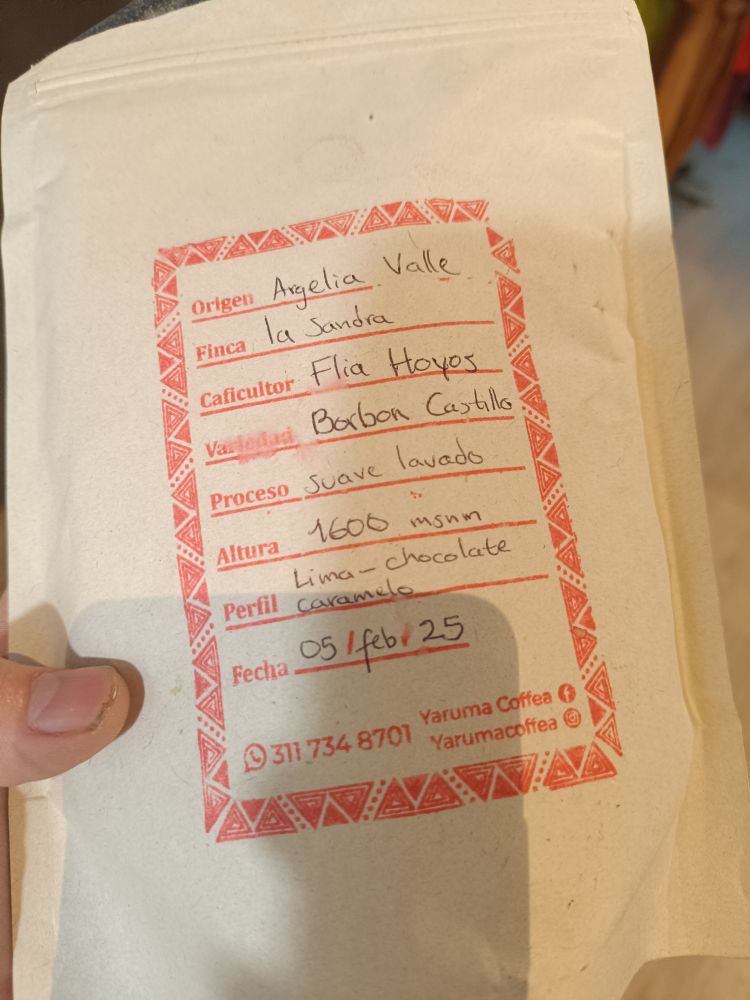 Origen Argelia Valle
Finca la Sandra
Caficultor Flia Hoyos
Variedad Borbon Castillo
Proceso suave lavado
Altura 1600 msnm
Lima - chocolate
Perfil caramelo
Fecha 05/feb/25
311 734 8701 Yaruma Coffea
Yarumacoffea